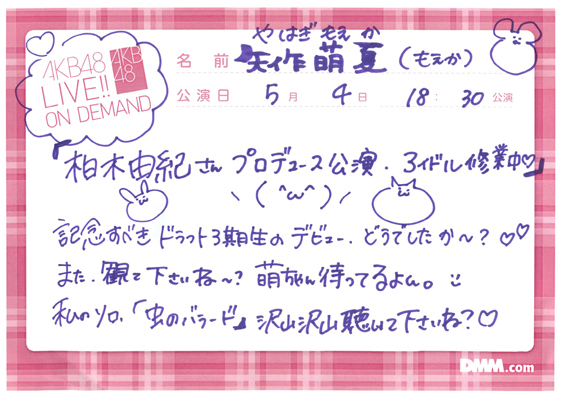 やはぎもえか
AKB48
LIVE!!
ON DEMAND
AKB
48
名前 矢作萌夏(もえか)
公演日 5月4日 18:30公演
「柏木由紀さんプロデュース公演.アイドル修業中♡」
\ (^ω^) /
記念すべきドラフト3期生のデビュー.どうでしたか〜?♡♡
また.観て下さいね〜?萌ちゃん待ってるよん。
私のソロ.「虫のバラード」沢山沢山聴いて下さいね?♡
DMM.com